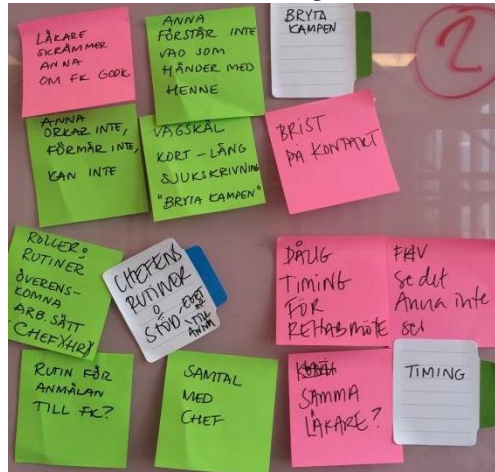 LÄKARE
SKRÄMMER
ANNA
OM FK GODK
ANNA
FÖRSTÅR INTE
VAD SOM
HÄNDER MED
HENNE
BRYTA
KAMPEN
2
ANNA
ORKAR INTE,
FÖRMÅR INTE,
KAN INTE
VÅGSKÅL
KORT - LÅNG
SJUKSKRIVNING
"BRYTA KAMPEN"
BRIST
PÅ KONTAKT
ROLLER,
RUTINER
ÖVERENS-
KOMNA
ARB. SÄTT
CHEF/HR
CHEFENS
RUTINER
STÖD
TILL
ANNA
DÅLIG
TIMING
FÖR
REHABMÖTE
Se det
Anna inte
ser
RUTIN FÖR
ANMÄLAN
TILL FK?
SAMTAL
MED
CHEF
SAMMA
LÄKARE?
TIMING